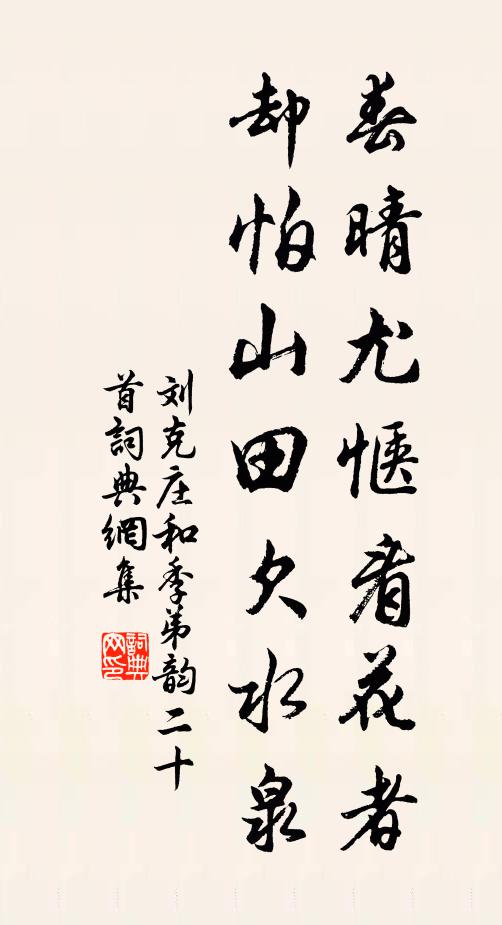 春晴尤惬看花者
却怕山田欠水泉
刘克庄和季弟韵二十
首詞典網集
詞典
网印